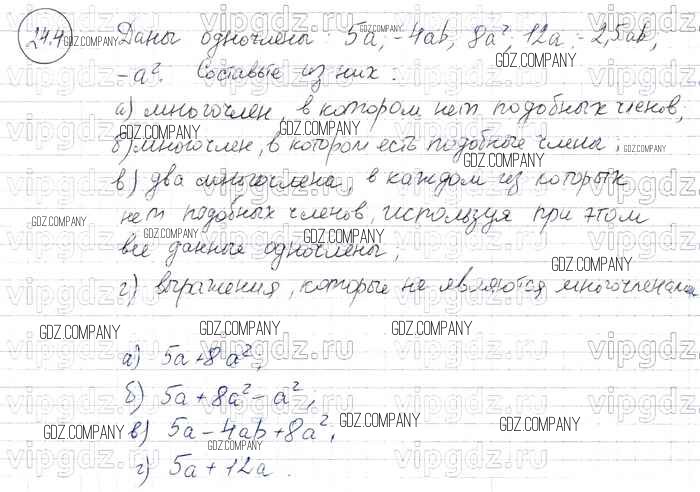 24.4 Даны одночлены: 5a, -4ab, 8a², 12a, -2,5ab,
-a². Составьте из них:
а) многочлен, в котором нет подобных членов,
б) многочлен, в котором есть подобные члены;
в) два многочлена, в каждом из которых
нет подобных членов, используя при этом
все данные одночлены;
г) выражения, которые не являются многочленами
а) 5a + 8a²;
б) 5a + 8a² - a²;
в) 5a - 4ab + 8a²;
г) 5a + 12a.
vipgdz.ru
GDZ.COMPANY